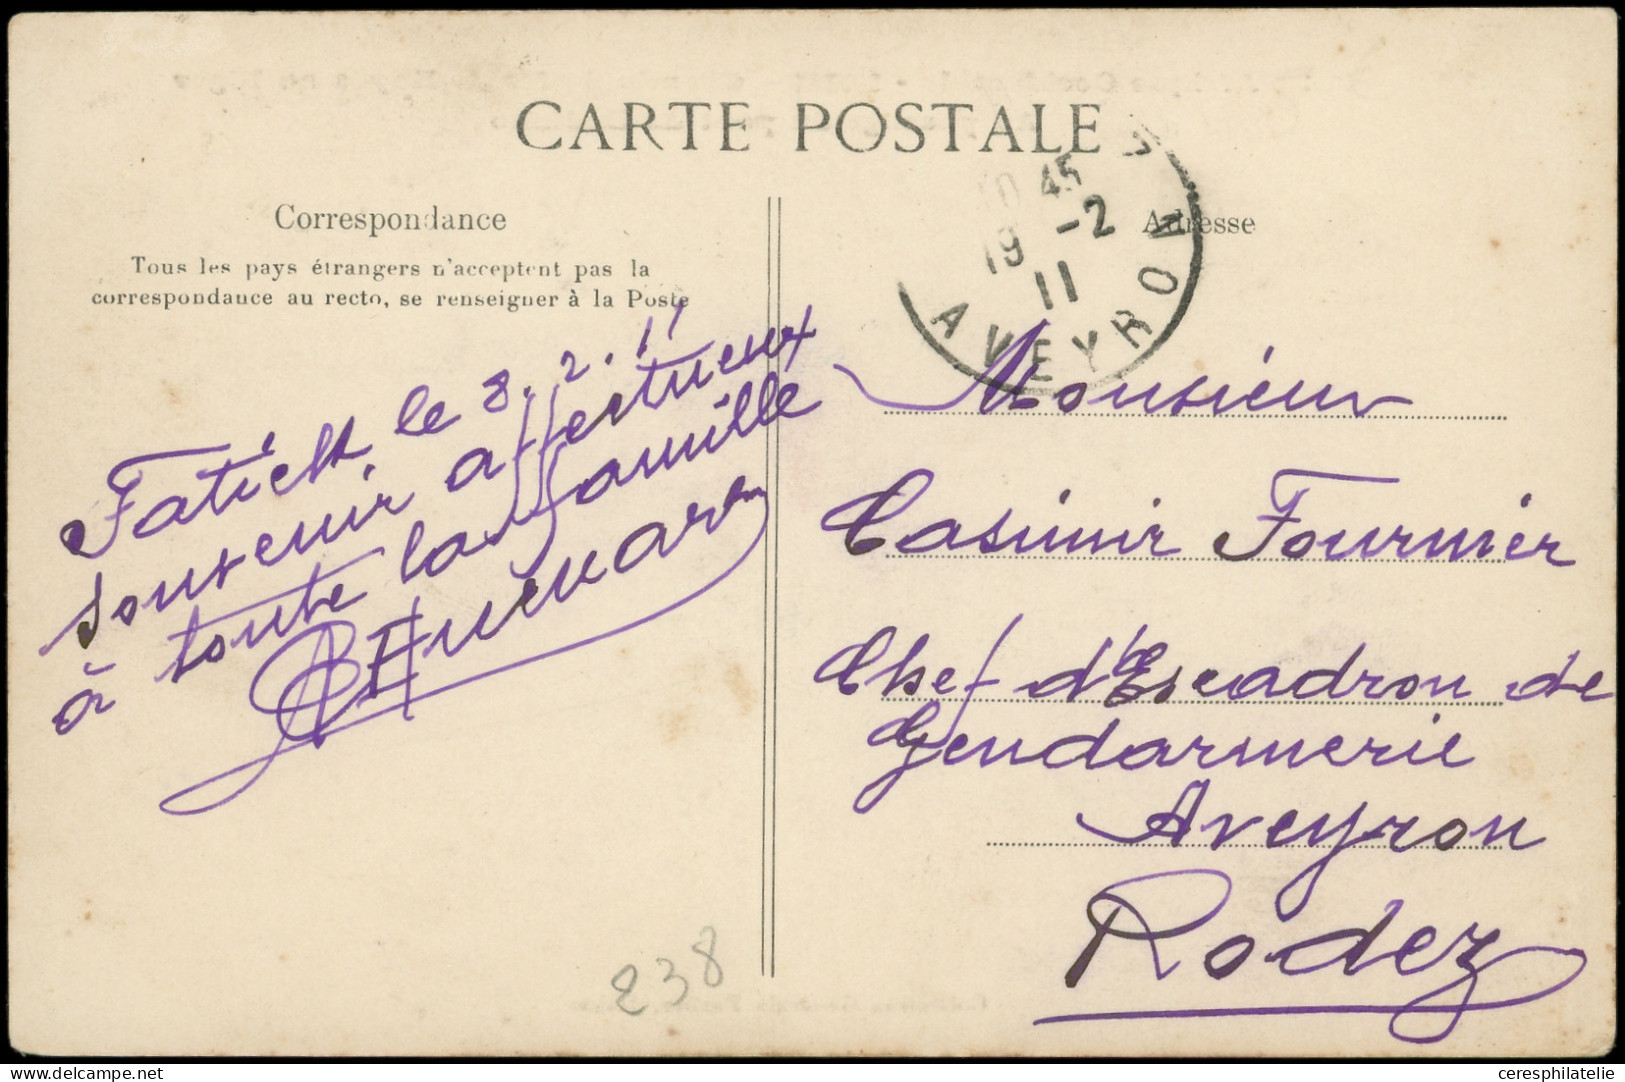 CARTE POSTALE
Correspondance
Tous les pays étrangers n'acceptent pas la
correspondance au recto, se renseigner à la Poste
Fatick, le 8.2.11
souvenir affectueux
à toute la famille
10 45
19 -2
11
AVEYRON
Adresse
Monsieur
Casimir Fournier
Chef d'Escadron de
Gendarmerie
Aveyron
Rodez
238
Delcampe.net
ceresphilatelie